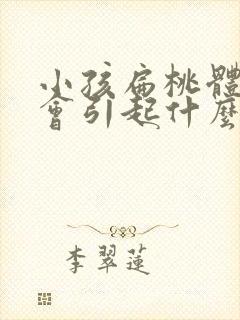 小孩扁桃體
會引起什麼
李翠蓮